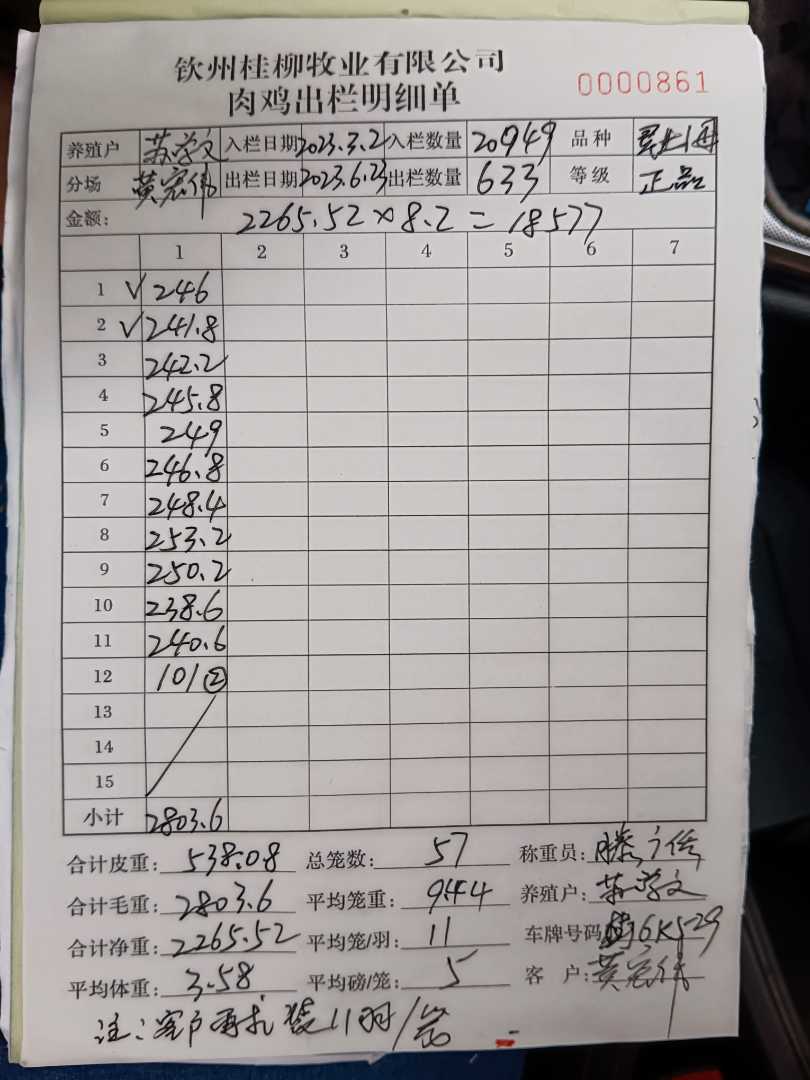 钦州桂柳牧业有限公司
肉鸡出栏明细单 0000861
养殖户 苏学文 入栏日期 2023.3.2 入栏数量 20949 品种
分场 黄宏伟 出栏日期 2023.6.23 出栏数量 633 等级 正品
金额: 2265.52×8.2=18577
1 2 3 4 5 6 7
1 √ 246
2 √ 241.8
3 242.2
4 245.8
5 249
6 246.8
7 248.4
8 253.2
9 250.2
10 238.6
11 240.6
12 101②
13
14
15
小计 2803.6
合计皮重: 538.08 总笼数: 57 称重员:
合计毛重: 2803.6 平均笼重: 9.44 养殖户: 苏学文
合计净重: 2265.52 平均笼/羽: 11 车牌号码: 6K529
平均体重: 3.58 平均磅/笼: 5 客户: 黄宏伟
注:客户要求装11羽/笼